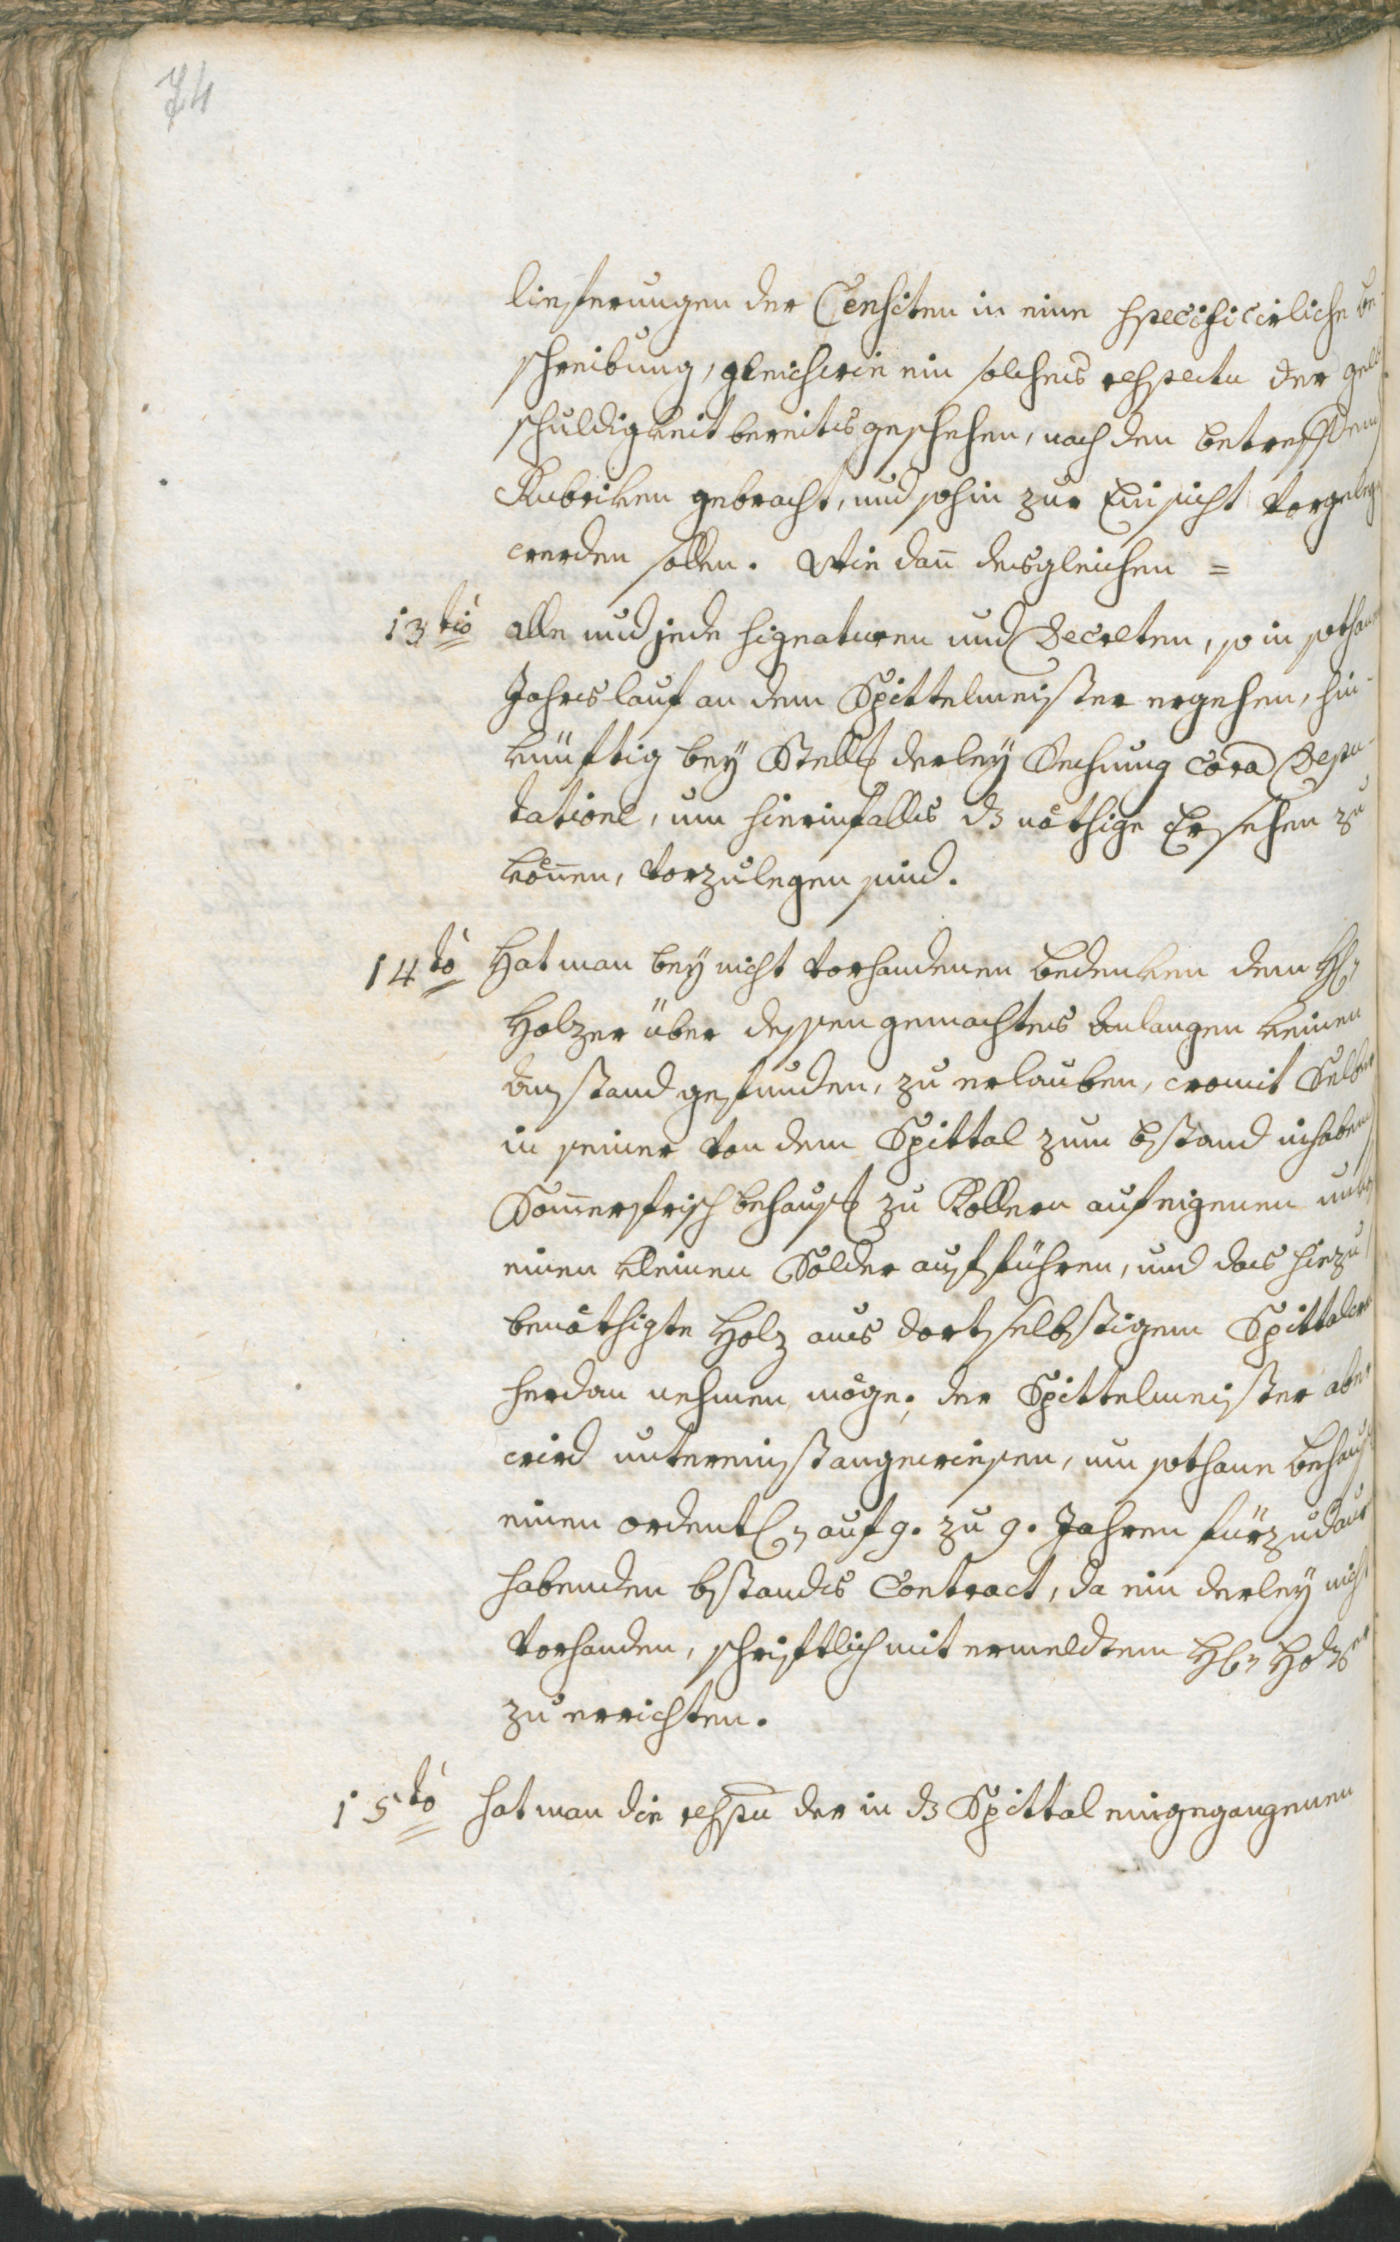 74
lieferungen der Censiten in eine specificirliche be-
schreibung, gleichwie ein solches respectu der geld
schuldigkeit bereits geschehen, nach den betreffenden
Rubriken gebracht, und sohin zur Einsicht vorgelegt
werden sollen. Wie dañ desgleichen =
13tiò alle und jede Signaturen und Decreten, so in sothanen
Jahrslauf an dem Spittelmeister ergehen, hin-
künftig bey Stell derley Rechnung corã Depu-
tatione, um hierinfalls dz nöthige Ersehen zu
köñen, vorzulegen sind.
14tò Hat man bey nicht vorhandenen bedenken dem H:
Holzer über dessen gemachtes Anlangen keinen
Anstand gefunden, zu erlauben, womit Selber
in seiner von dem Spittal zum bstand inhabenden
Som̃erfrisch behausg zu Kollern auf eigenen unkosten
einen kleinen Solder aufführen, und das hiezu
benöthigte Holz aus dortselbstigem Spittal
herdan nehmen möge; der Spittelmeister aber
wird untereinst angewiesen, um sothane behausg
einen ordentl: auf 9. zu 9. Jahren fürzudauern
habenden bstands Contract, da ein derley nicht
vorhanden, schriftlich mit ermeldtem H: Holzer
zu errichten.
15tò hat man die respu der in dz Spittal eingegangenen